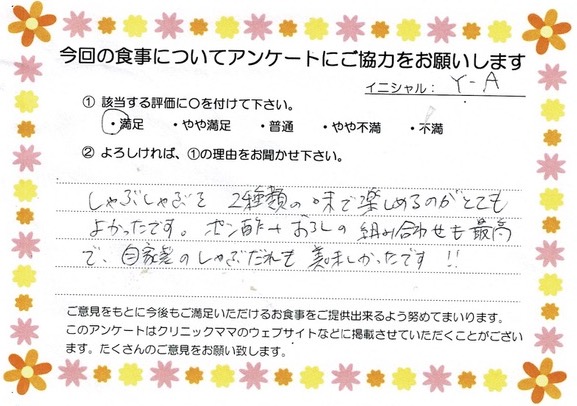 今回の食事についてアンケートにご協力をお願いします
イニシャル: Y-A
① 該当する評価に〇を付けて下さい。
・満足 ・やや満足 ・普通 ・やや不満 ・不満
② よろしければ、①の理由をお聞かせ下さい。
しゃぶしゃぶを2種類の味で楽しめるのがとても
よかったです。ポン酢+おろしの組み合わせも最高
で、自家製のしゃぶだれも美味しかったです!!
ご意見をもとに今後もご満足いただけるお食事をご提供出来るよう努めてまいります。
このアンケートはクリニックママのウェブサイトなどに掲載させていただくことがござい
ます。たくさんのご意見をお願い致します。